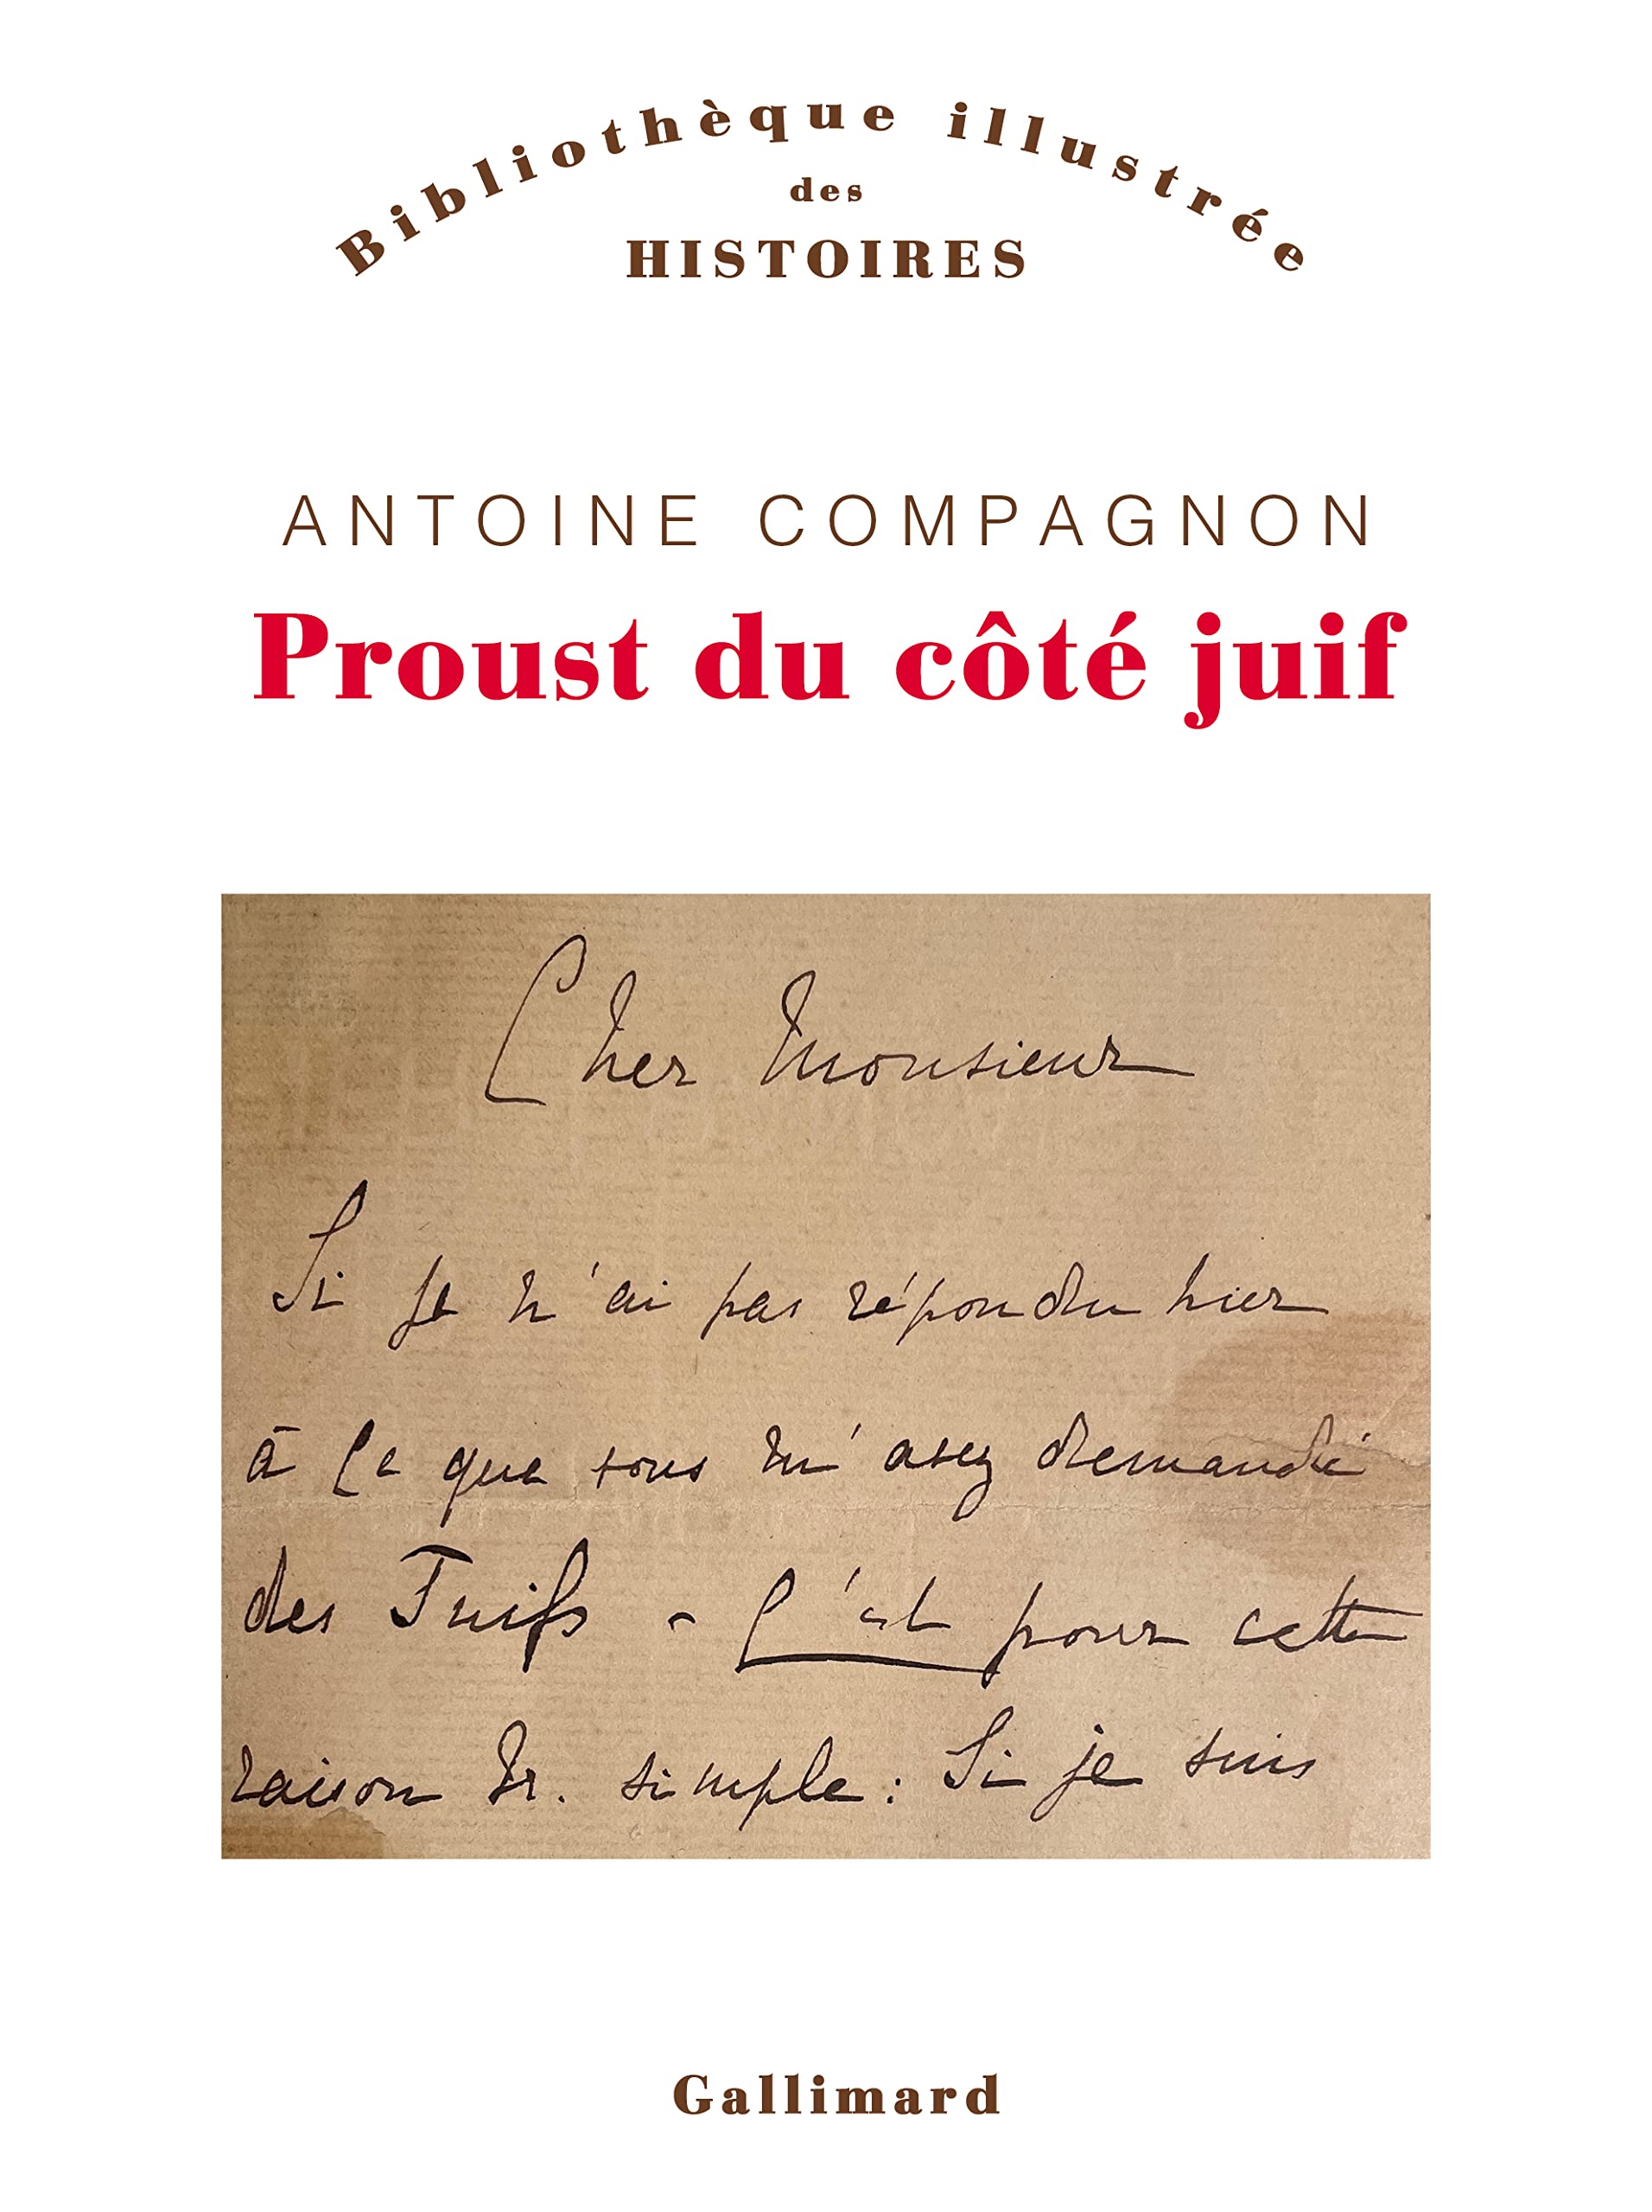 Bibliothèque illustrée
des
HISTOIRES
ANTOINE COMPAGNON
Proust du côté juif
Cher Monsieur
Si je n'ai pas répondu hier
à ce que vous m'avez demandé
des Juifs - C'est pour cette
raison tr. simple: Si je suis
Gallimard